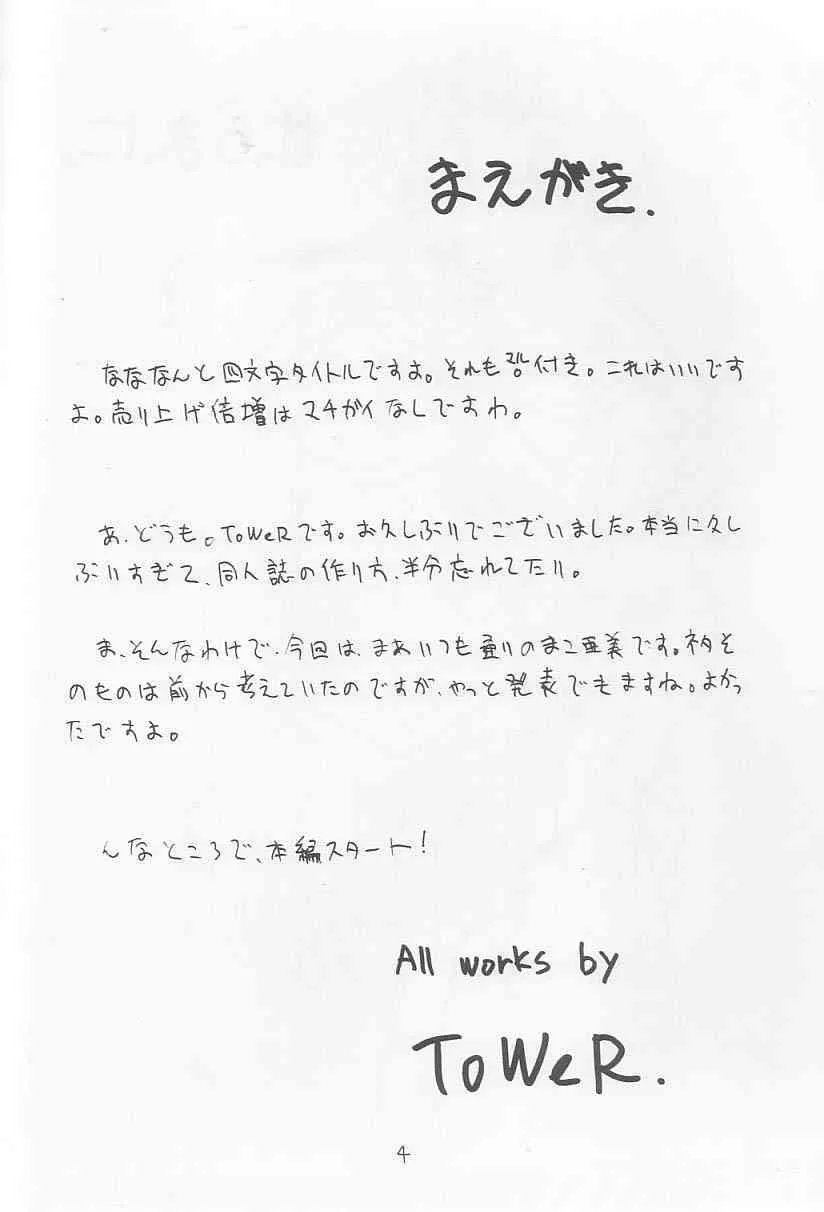 まえがき.
なななんと四文字タイトルですよ。それもマル付き。これはいいです
よ。売り上げ倍増はマチガイなしですわ。
あ、どうも。ToWeRです。お久しぶりでございました。本当に久し
ぶりすぎて、同人誌の作り方、半分忘れてたり。
ま、そんなわけで、今回は、まあいつも通りのまこ亜美です。ネタそ
のものは前から考えていたのですが、やっと発表できますね。よかっ
たですよ。
んなところで、本編スタート！
All works by
ToWeR.
4